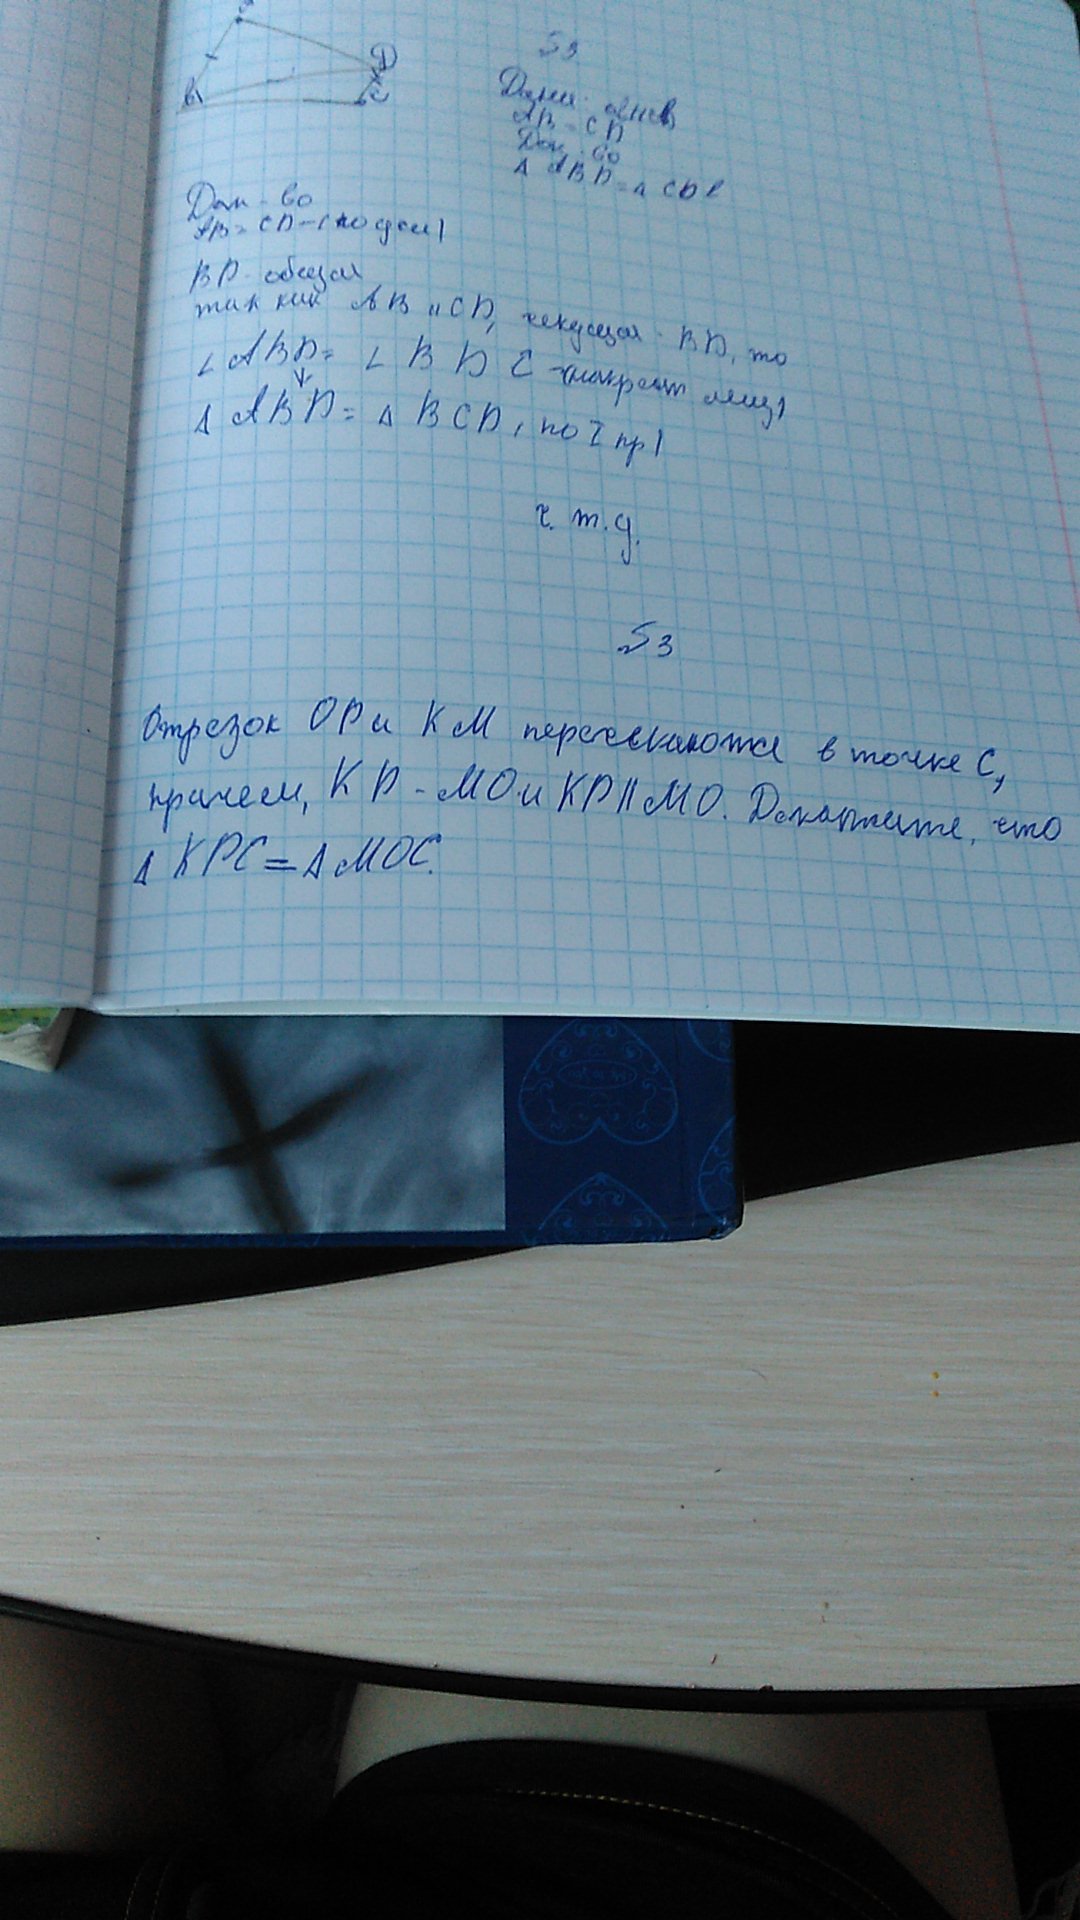 B
D
C
S 3
AB = CD
Док-во
Δ ABD = Δ CDB
Док-во
AB = CD - (по усл)
BD - общая
так как AB || CD, секущая - BD, то
∠ ABD = ∠ BDC
Δ ABD = Δ BCD, по I пр)
ч. т. д.
S 3
Отрезок OP и KM пересекаются в точке C,
причем, KP - MO и KP || MO. Докажите, что
Δ KPC = Δ MOC.